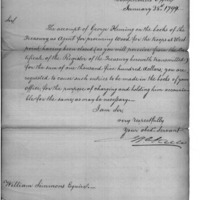 January 26th, 1799.
Sir,
The account of George Fleming on the books of the
Treasury as Agent for procuring Wood for the
having been closed (as you will perceive from the
of the Register of the Treasury herewith transmitted)
for the sum of one thousand five hundred dollars, you are
requested to cause such entries to be made on the books of your
office, for the purpose of charging and holding him accounta-
ble for the same as may be necessary.
I am Sir
very respectfully
Your Obed. Servant
William Simmons Esquire